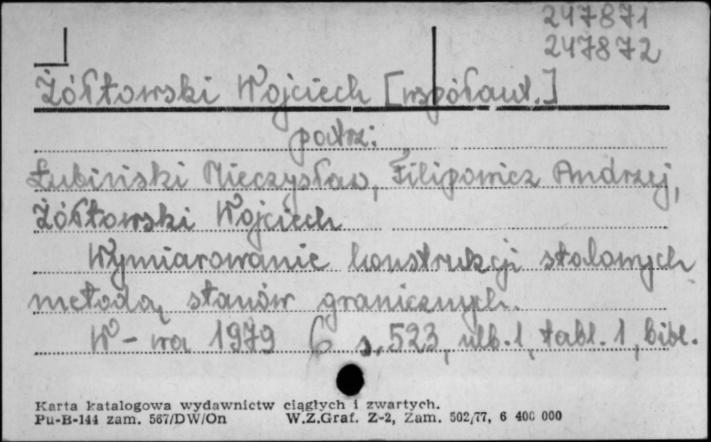 247871
247872
Żółtowski Wojciech [współaut.]
patrz:
Łubiński Mieczysław, Filipowicz Andrzej,
Żółtowski Wojciech
Wymiarowanie konstrukcji stalowych
metodą stanów granicznych.
W-wa 1979 s. 523, nlb. 1, tabl. 1, bibl.
Karta katalogowa wydawnictw ciągłych i zwartych.
Pu-B-144 zam. 567/DW/On W.Z.Graf. Z-2, Zam. 502/77, 6 400 000